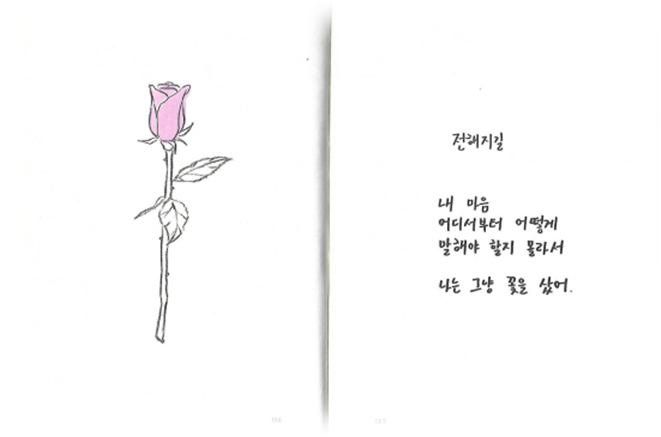 전해지길
내 마음
어디서부터 어떻게
말해야 할지 몰라서
나는 그냥 꽃을 샀어.